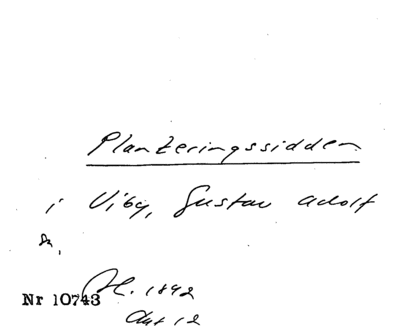 Planteringssidden
i Viby, Gustav Adolf
Sk,
Nr 10743
H. 1892
Avt 12